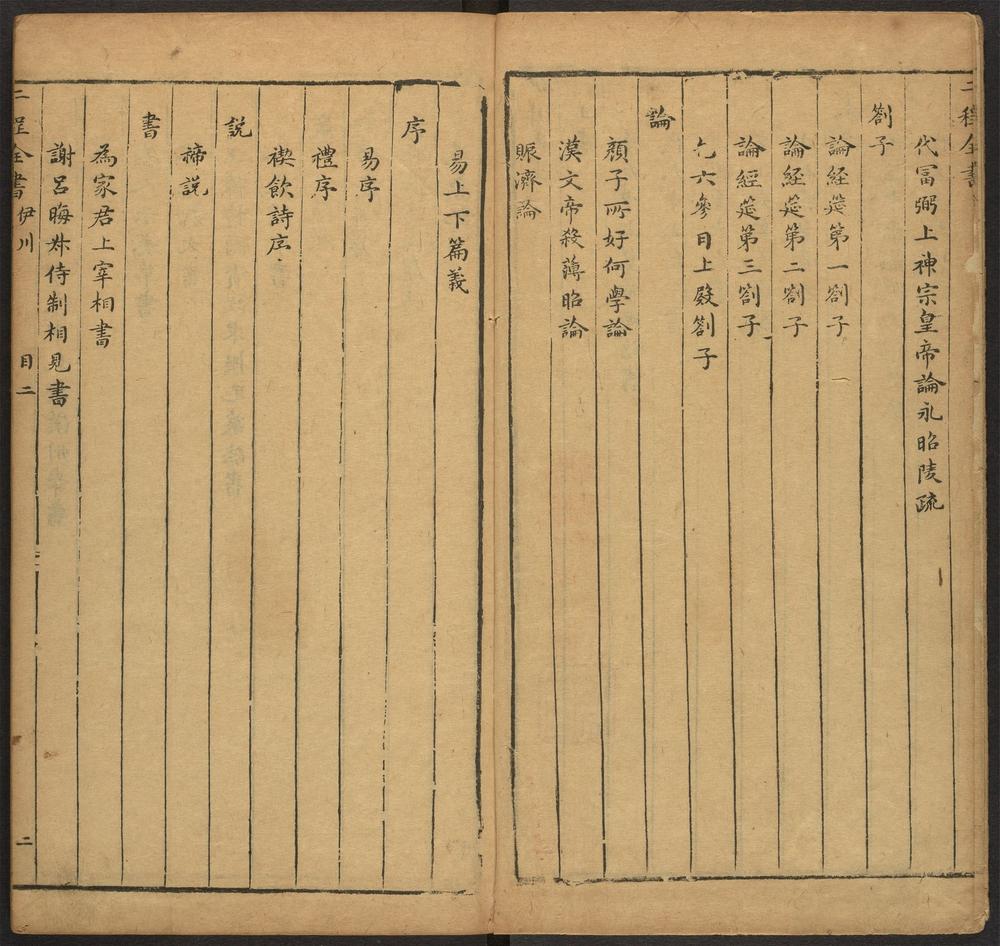 二程全書
代冨弼上神宗皇帝論永昭陵疏
劄子
論経筵第一劄子
論経筵第二劄子
論經筵第三劄子
九六參日上殿劄子
論
顏子所好何學論
漢文帝殺薄昭論
賑濟論
易上下篇義
序
易序
禮序
禊飲詩序
説
禘説
書
為家君上宰相書
謝呂晦叔侍制相見書
二程全書 伊川 目二 二